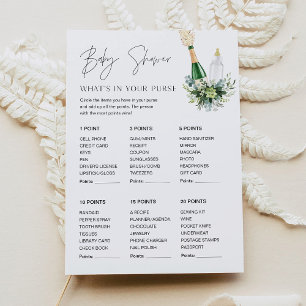 Baby Shower
WHAT'S IN YOUR PURSE
Circle the items you have in your purse
and add up the points. The person
with the most points wins!
1 POINT
CELL PHONE
CREDIT CARD
KEYS
PEN
DRIVERS LICENCE
LIPSTICK/GLOSS
Points:
3 POINTS
GUM/MINTS
RECEIPT
COUPON
SUNGLASSES
BRUSH/COMB
TWEEZERS
Points:
5 POINTS
HAND SANITIZER
MIRROR
MASCARA
PHOTO
HEADPHONES
GIFT CARD
Points:
10 POINTS
BANDAID
PEPPER SPRAY
TOOTH BRUSH
TISSUES
LIBRARY CARD
CHECK BOOK
Points:
15 POINTS
A RECIPE
PLANNER/AGENDA
CHOCOLATE
JEWELRY
PHONE CHARGER
NAIL POLISH
Points:
20 POINTS
SEWING KIT
WINE
POCKET KNIFE
UNDERWEAR
POSTAGE STAMPS
PASSPORT
Points: